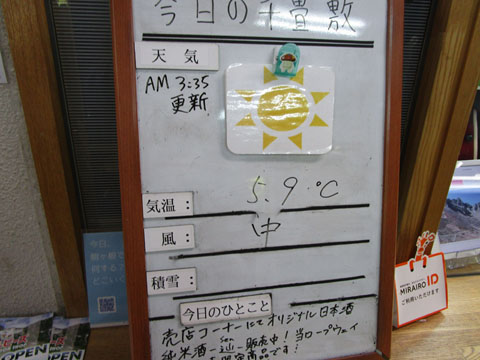 今日の千畳敷
天気
AM 3:35
更新
気温：
5.9℃
風：
中
積雪：
今日のひとこと
売店コーナーにてオリジナル日本酒
純米酒
販売中！当ロープウェイ
商品です！
MIRAIRO ID
ご利用いただけます
OPEN
OPEN
今日、